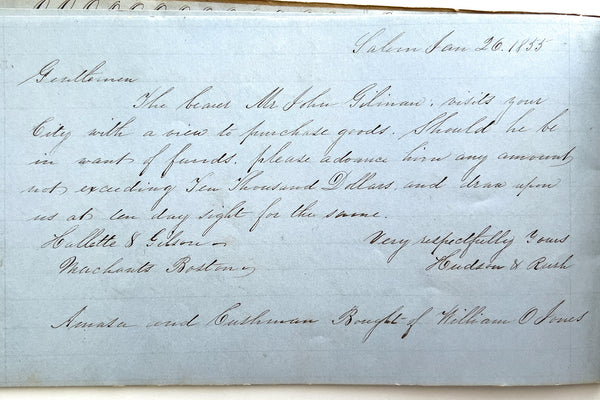 Salem Jan 26. 1855
Gentlemen
The bearer Mr John Gilman. visits your
City with a view to purchase goods. Should he be
in want of funds. please advance him any amount
not exceeding Ten Thousand Dollars, and draw upon
us at ten day sight for the same.
Hallette & Gilson Very respectfully Yours
Merchants Boston Hudson & Rush
Amasa and Cushman Bought of William O Jones